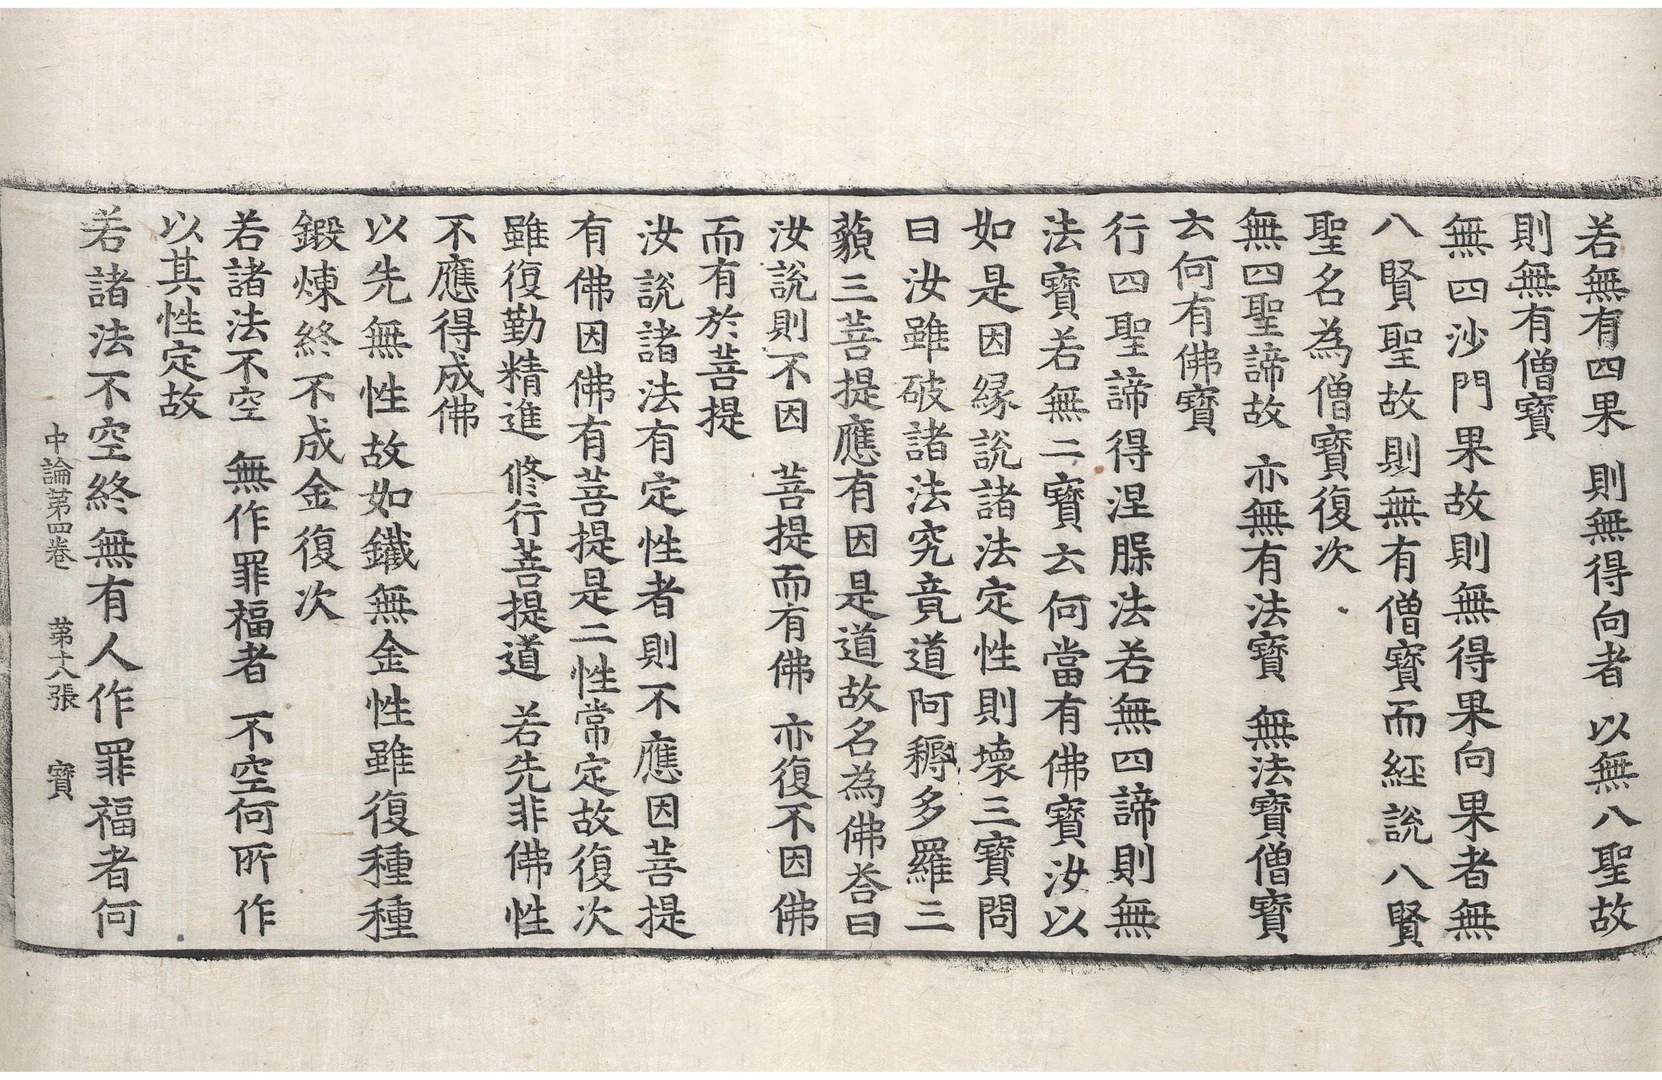 若無有四果 則無得向者 以無八聖故
則無有僧寶
無四沙門果故則無得果向果者無
八賢聖故則無有僧寶而経說八賢
聖名為僧寶復次
無四聖諦故 亦無有法寶 無法寶僧寶
云何有佛寶
行四聖諦得涅槃法若無四諦則無
法寶若無二寶云何當有佛寶汝以
如是因緣說諸法定性則壞三寶問
曰汝雖破諸法究竟道阿耨多羅三
藐三菩提應有因是道故名為佛荅曰
汝說則不因 菩提而有佛 亦復不因佛
而有於菩提
汝說諸法有定性者則不應因菩提
有佛因佛有菩提是二性常定故復次
雖復勤精進 修行菩提道 若先非佛性
不應得成佛
以先無性故如鐵無金性雖復種種
鍛煉終不成金復次
若諸法不空 無作罪福者 不空何所作
以其性定故
中論第四卷 第十八張 寶
若諸法不空終無有人作罪福者何